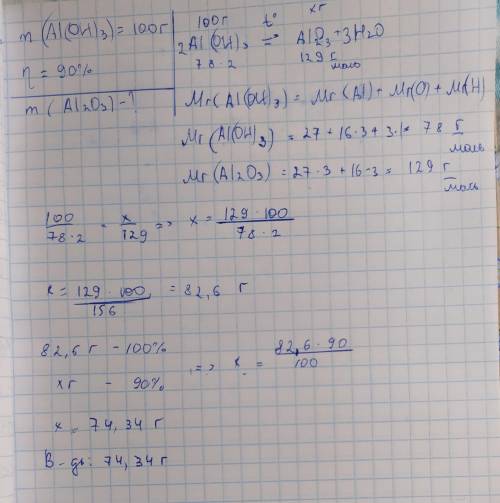 m (Al(OH)₃) = 100г
η = 90%
m (Al₂O₃) - ?
100г t° xг
2Al(OH)₃ = Al₂O₃ + 3H₂O
78·2 129 г/моль
Mr(Al(OH)₃) = Mr(Al) + Mr(O) + Mr(H)
Mr(Al(OH)₃) = 27 + 16·3 + 3·1 = 78 г/моль
Mr(Al₂O₃) = 27·3 + 16·3 = 129 г/моль
100/78·2 = x/129 => x = 129·100/78·2
x = 129·100/156 = 82,6 г
82,6 г - 100%
xг - 90%
=> x = 82,6·90/100
x = 74,34 г
В-дь: 74,34 г